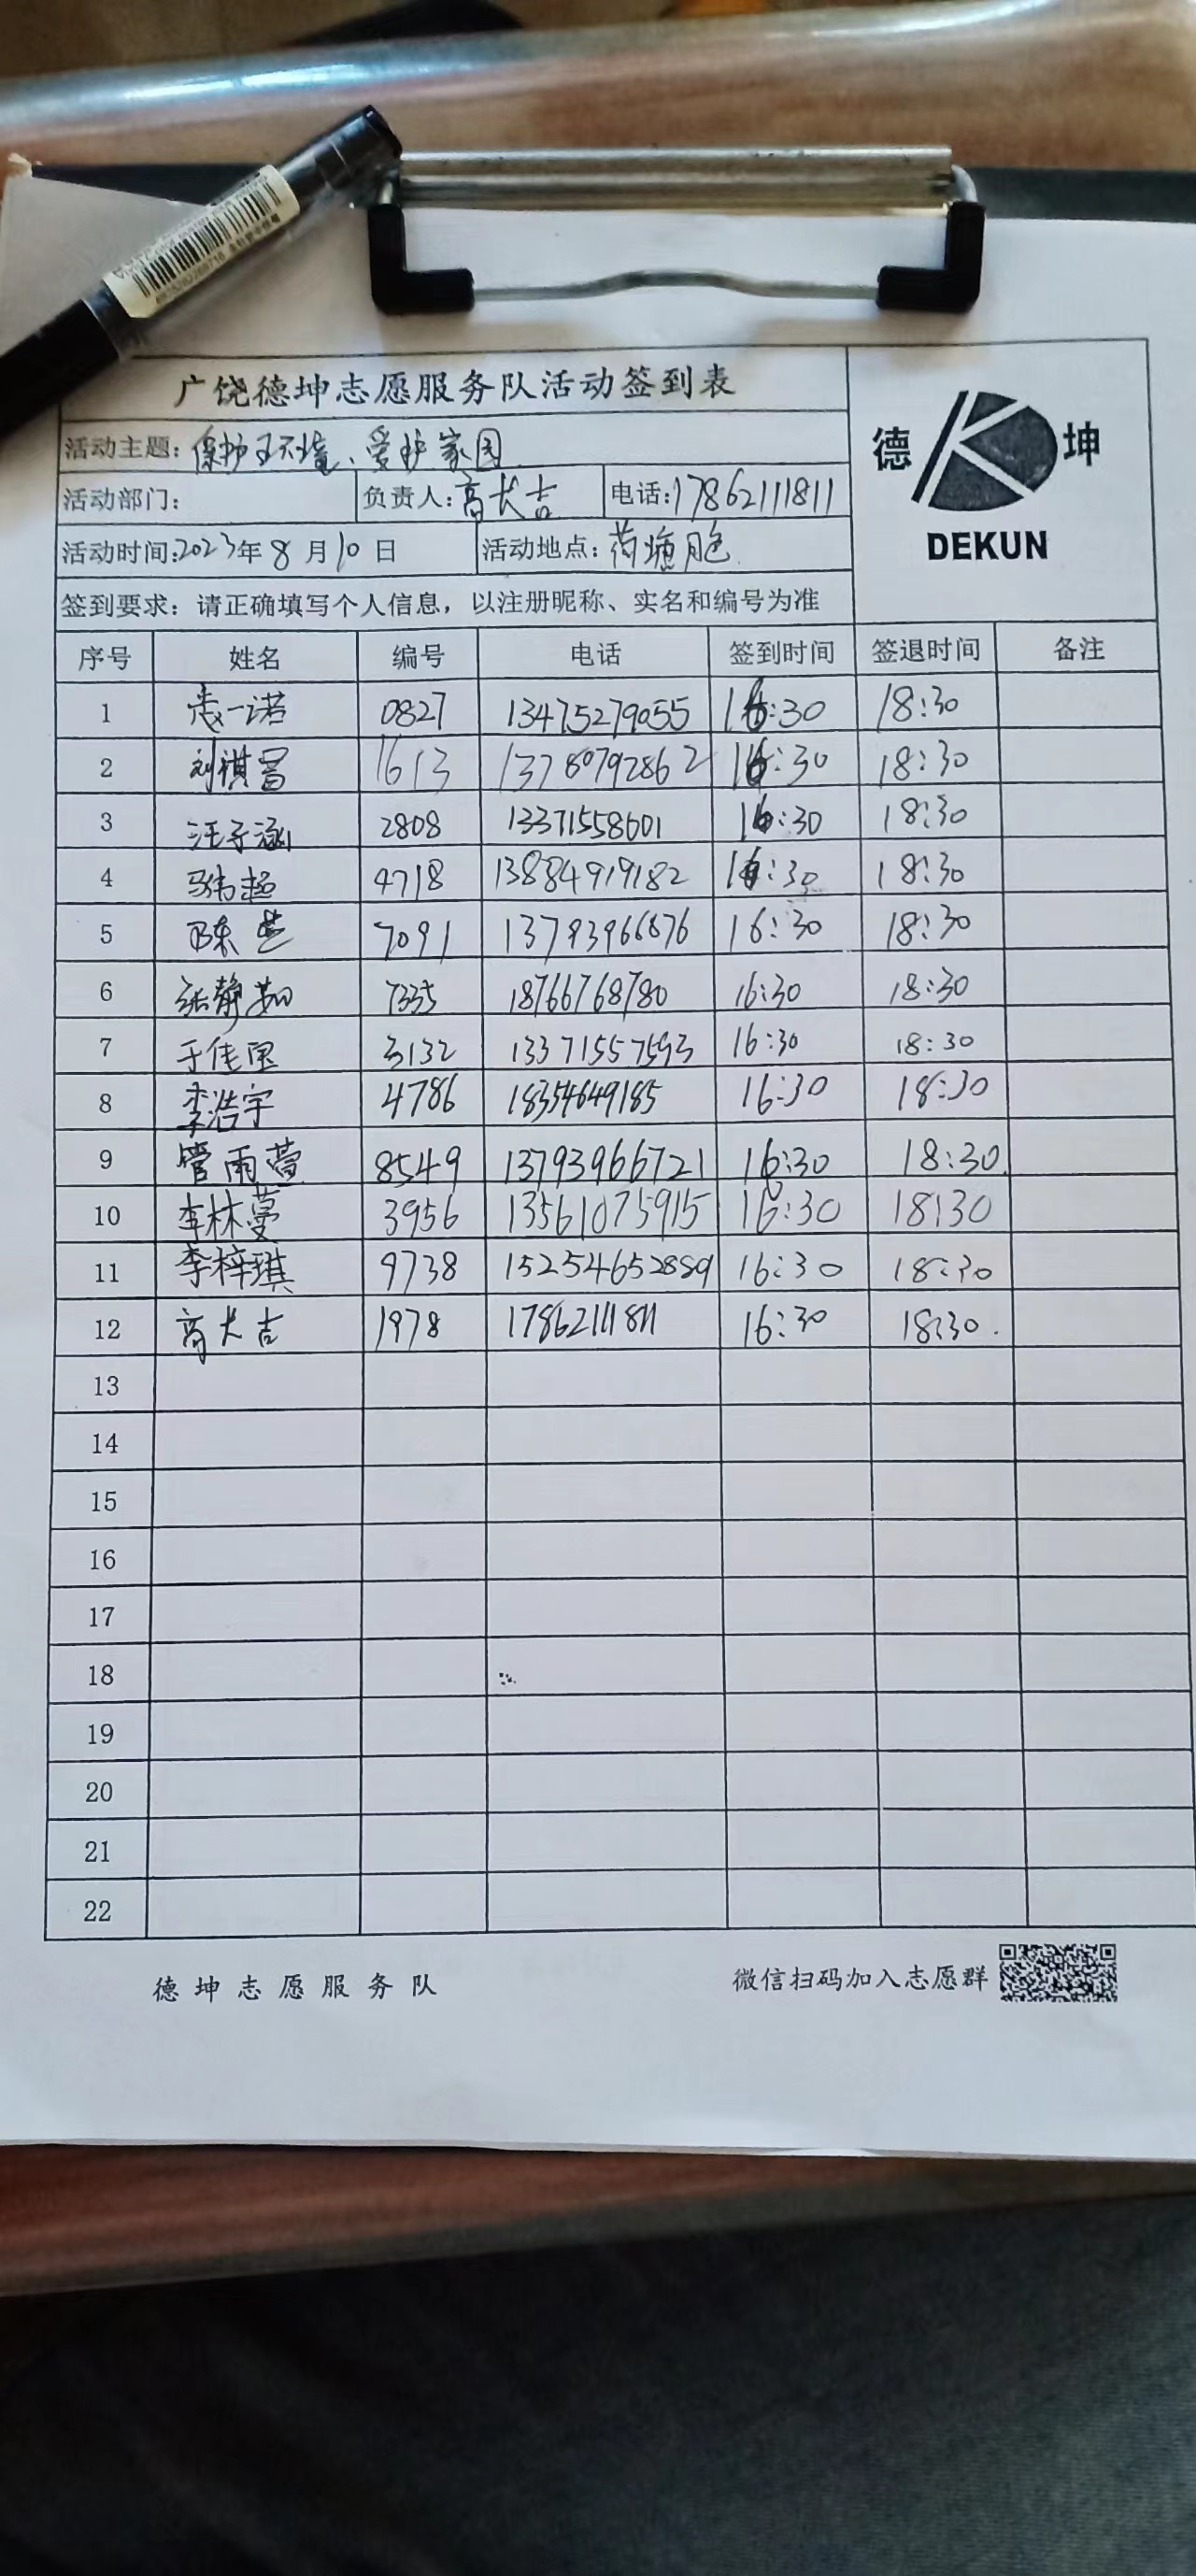 广饶德坤志愿服务队活动签到表
德 坤
DEKUN
活动主题：保护环境、爱护家园
活动部门： 负责人：高大吉 电话：17862111811
活动时间：2023年8月10日 活动地点：荷塘月色
签到要求：请正确填写个人信息，以注册昵称、实名和编号为准
序号 姓名 编号 电话 签到时间 签退时间 备注
1 一诺 0827 13475279055 16:30 18:30
2 刘祺 1613 13780792862 16:30 18:30
3 汪子涵 2808 13371558601 16:30 18:30
4 超 4718 13884919182 16:30 18:30
5 陈 7091 13793966876 16:30 18:30
6 张静 7335 18766768780 16:30 18:30
7 于佳 3132 13371557593 16:30 18:30
8 李浩宇 4786 18354649185 16:30 18:30
9 管雨萱 8549 13793966721 16:30 18:30
10 李林蔓 3956 13561075915 16:30 18:30
11 李梓琪 9738 15254652889 16:30 18:30
12 高大吉 1978 17862111811 16:30 18:30
13
14
15
16
17
18
19
20
21
22
德坤志愿服务队 微信扫码加入志愿群